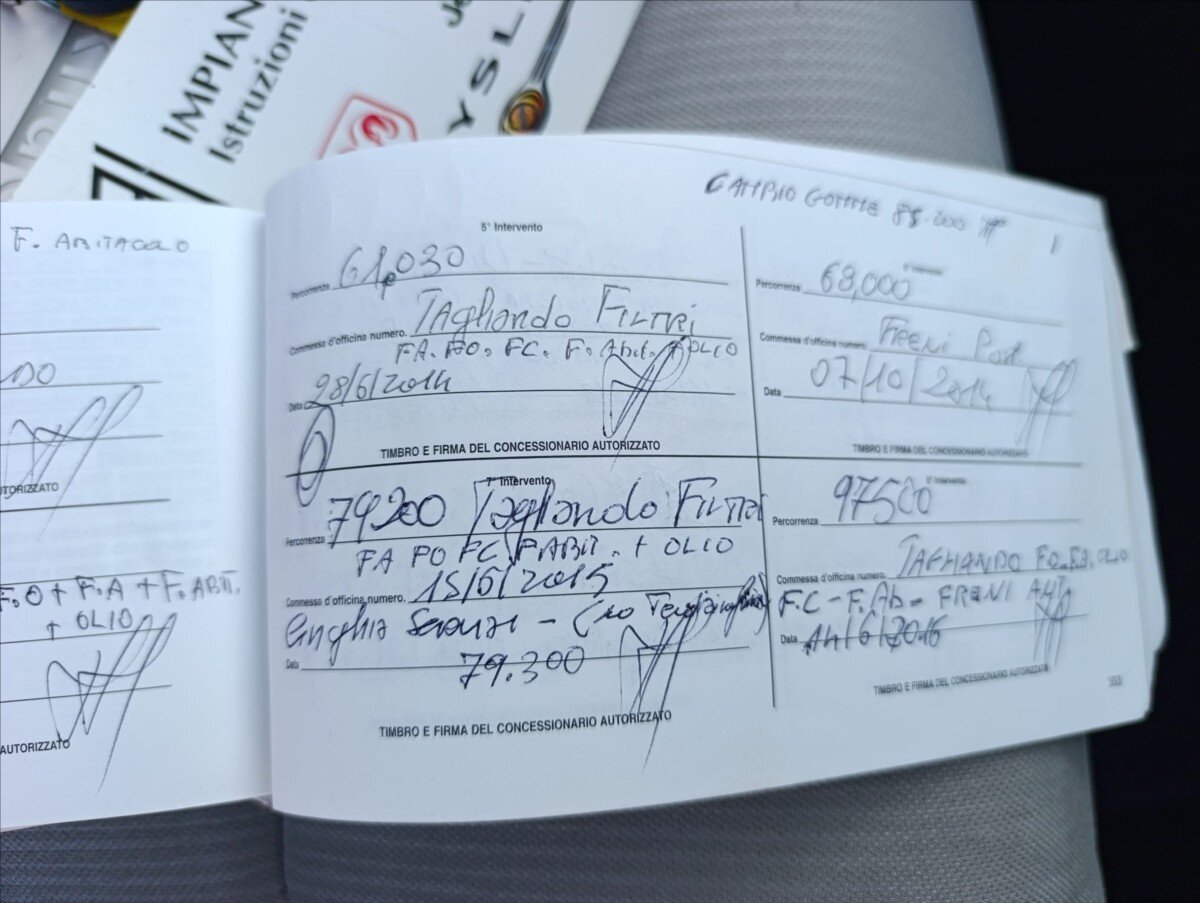 IMPIAN
Istruzioni
Je
YSL
F. ABITACOLO
F.O + F.A + F. ABIT.
+ OLIO
AUTORIZZATO
CAMBIO GOMME
5° Intervento
Percorrenza 61,030
Commessa d'officina numero. Tagliando FILTRI
FA. FO. FC. F. Abit. + OLIO
Data 28/6/2014
TIMBRO E FIRMA DEL CONCESSIONARIO AUTORIZZATO
Intervento
Percorrenza 68,000
Commessa d'officina numero. FRENI Post.
Data 07/10/2014
TIMBRO E FIRMA DEL CONCESSIONARIO AUTORIZZATO
7° Intervento
Percorrenza 79200 Tagliando FILTRI
FA FO FC FABIT. + OLIO
Commessa d'officina numero. 15/6/2015
Cinghia Servizi - (no
Data 79.300
TIMBRO E FIRMA DEL CONCESSIONARIO AUTORIZZATO
Intervento
Percorrenza 97500
Commessa d'officina numero. TAGLIANDO FO. FA. OLIO
F.C - F.Ab - FRENI ANT
Data 14/6/2016
TIMBRO E FIRMA DEL CONCESSIONARIO AUTORIZZATO